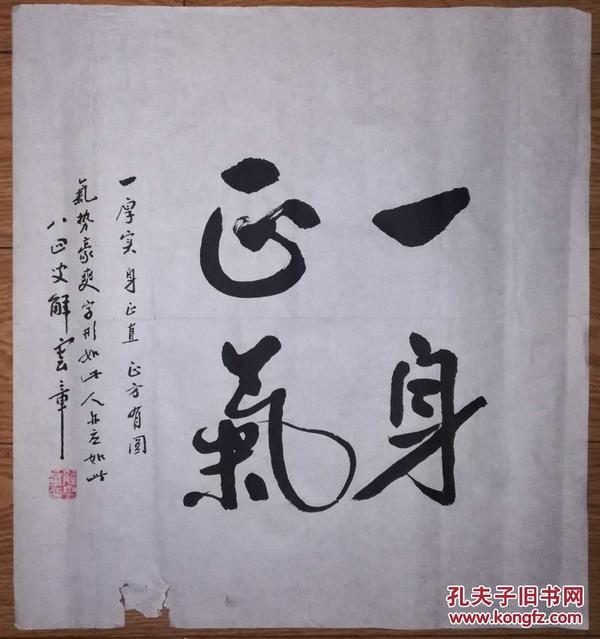 一身
正氣
一厚实 身正直 正方有圆
氣势豪爽 字形如此 人亦应如此
八四叟解云章
孔夫子旧书网
www.kongfz.com